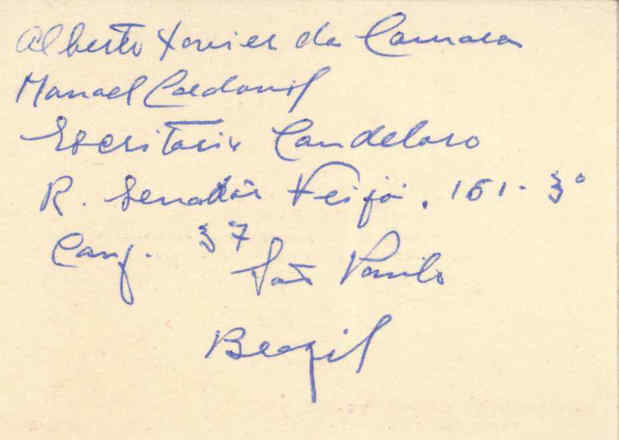 Alberto Xavier da Camara
Manoel
Escritorio Candeloro
R. Senador Feijó, 161-3º
Conj. 37
São Paulo
Brazil